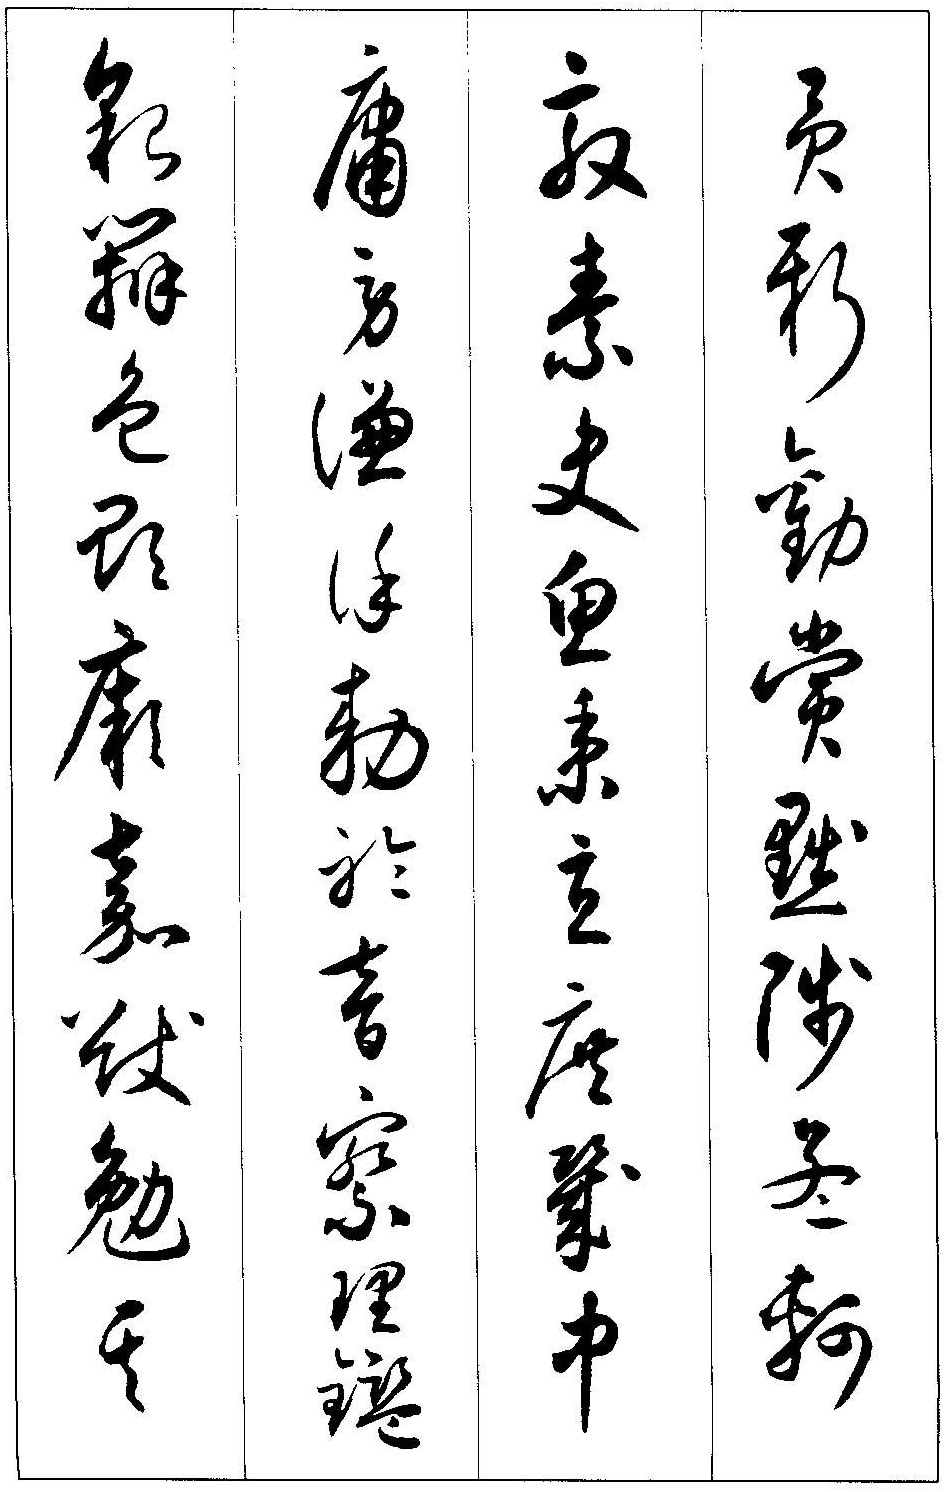 貢新勸賞黜陟孟軻
敦素史魚秉直庶幾中
庸勞謙謹勅聆音察理鑑
貌辨色貽厥嘉猷勉其